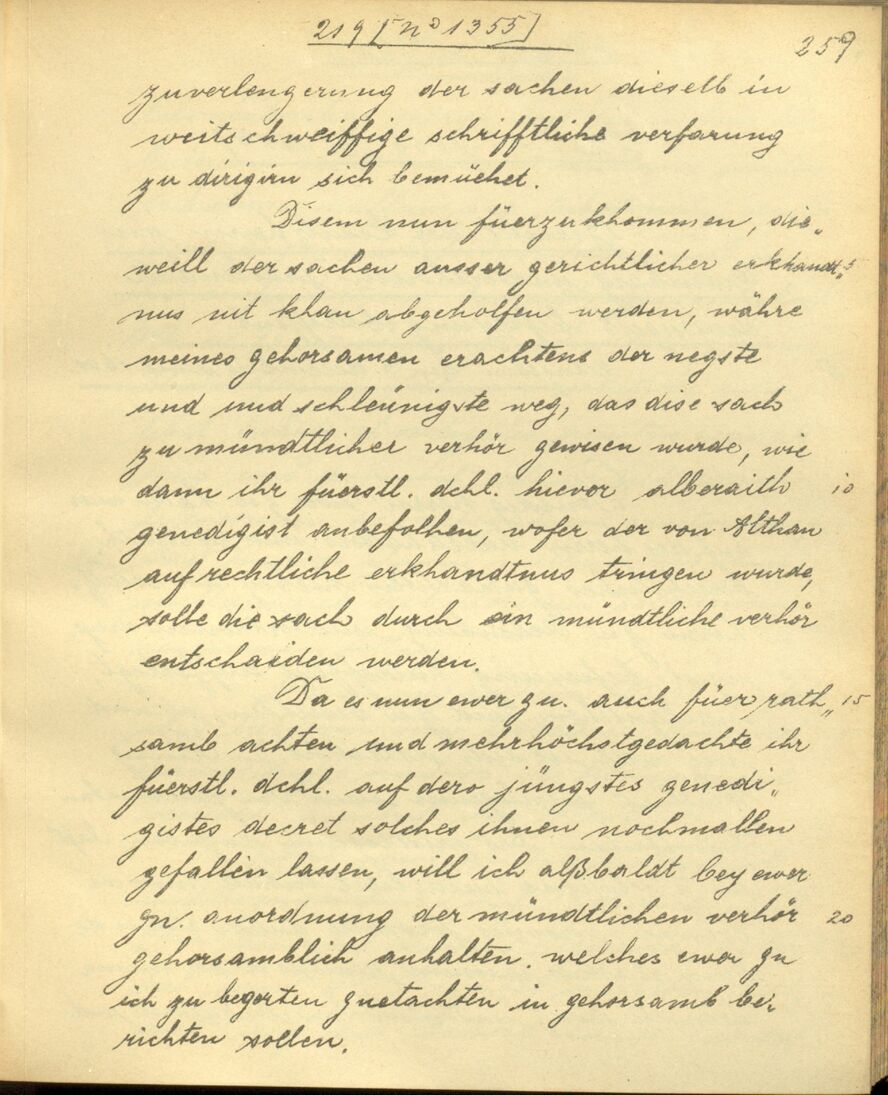 219 [no 1355]
259
zuverlengerung der sachen dieselb in
weitschweiffige schrifftliche verfarung
zu dirigirn sich bemüehet.
Disem nun füerzukhommen, die„
weill der sachen ausser gerichtlicher erkhandt„ 5
nus nit khan abgeholfen werden, währe
meines gehorsamen erachtens der negste
und und schleünigste weg, das dise sach
zu mündtlicher verhör gewisen wurde, wie
dann ihr füerstl. dchl. hievor alberaith 10
genedigist anbefolhen, wofer der von Althan
auf rechtliche erkhandtnus tringen wurde,
solle die sach durch ein mündtliche verhör
entschaiden werden.
Da es nun ewer gn. auch füer rath„ 15
samb achten und mehrhöchstgedachte ihr
füerstl. dchl. auf dero jüngstes genedi„
gistes decret solches ihnen nochmallen
gefallen lassen, will ich alßbaldt bey ewer
gn. anordnung der mündtlichen verhör 20
gehorsamblich anhalten. welches ewer gn
ich zu begerten guetachten in gehorsamb be„
richten sollen.